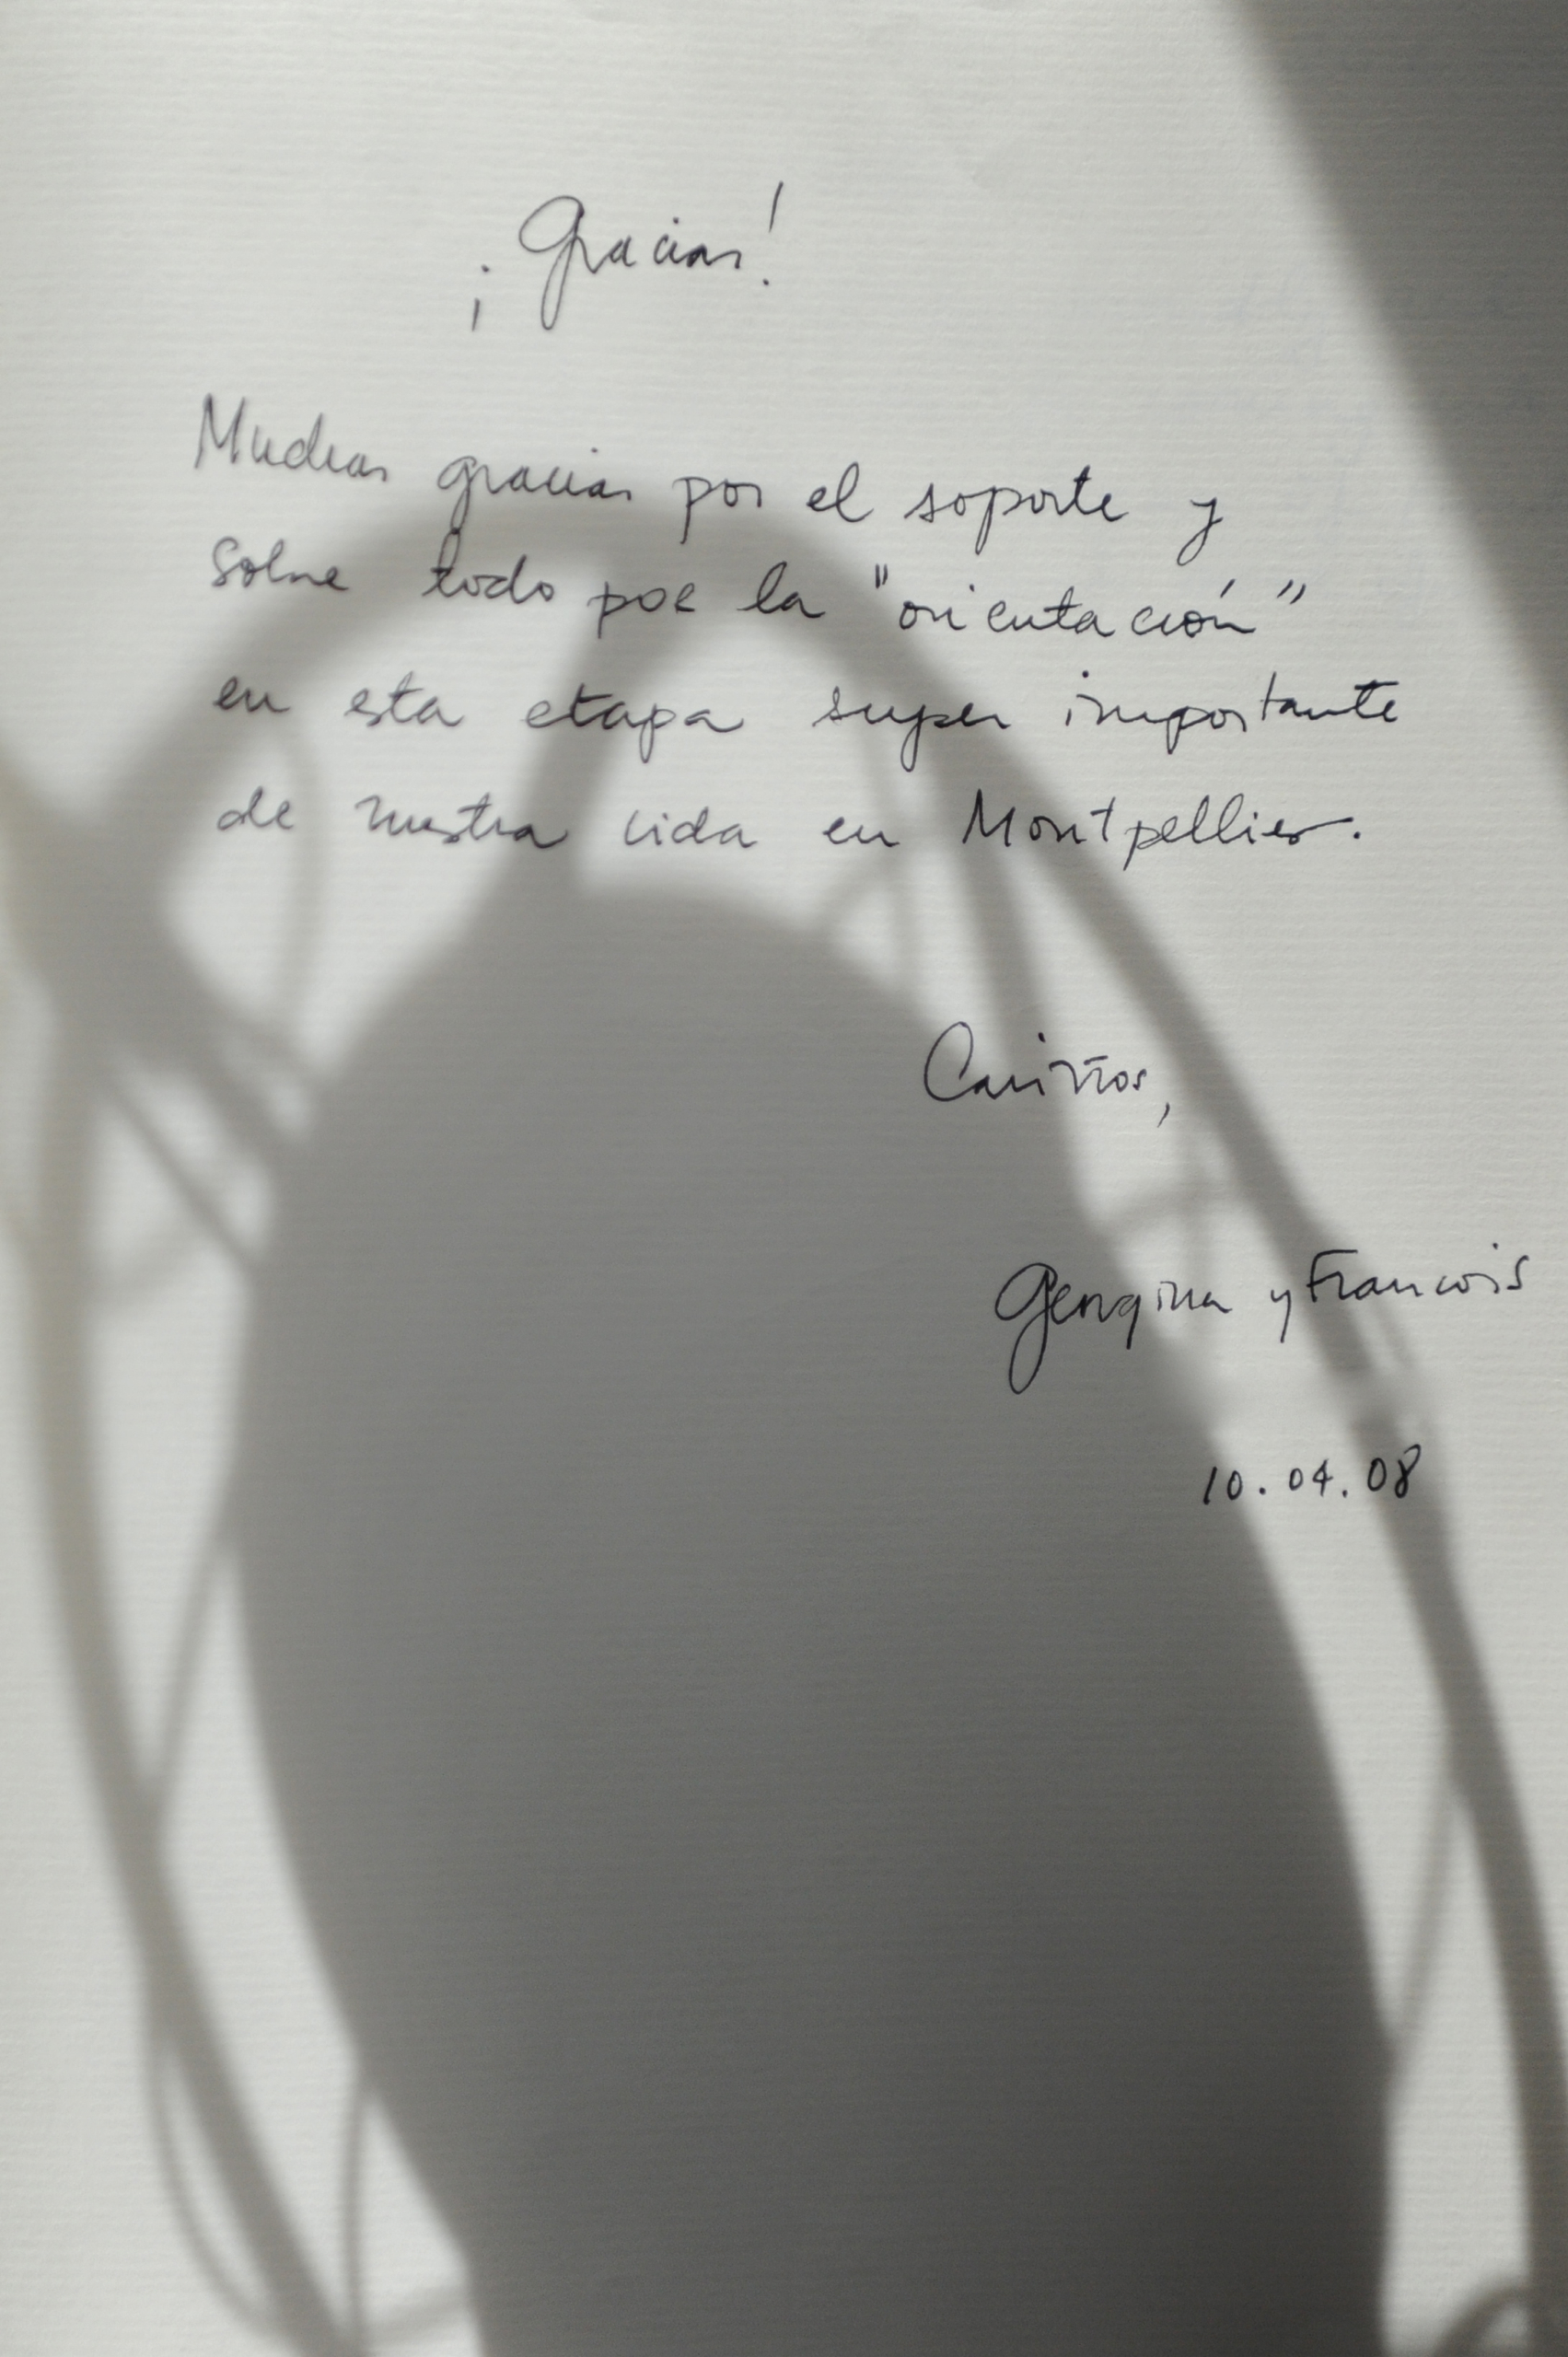 ¡Gracias!
Muchas gracias por el soporte y
sobre todo por la "orientación"
en esta etapa super importante
de nuestra vida en Montpellier.
Cariños,
Georgina y Francois
10.04.08